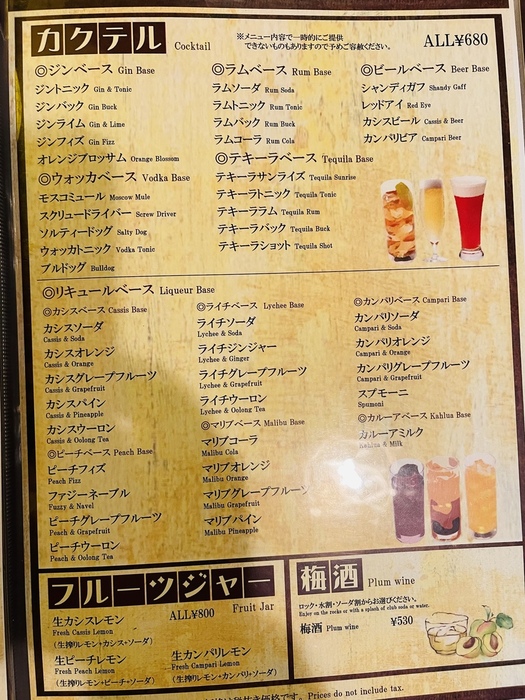 カクテル Cocktail
※メニュー内容で一時的にご提供
できないものもありますので予めご容赦ください。
ALL¥680
◎ジンベース Gin Base
ジントニック Gin & Tonic
ジンバック Gin Buck
ジンライム Gin & Lime
ジンフィズ Gin Fizz
オレンジブロッサム Orange Blossom
◎ウォッカベース Vodka Base
モスコミュール Moscow Mule
スクリュードライバー Screw Driver
ソルティードッグ Salty Dog
ウォッカトニック Vodka Tonic
ブルドッグ Bulldog
◎ラムベース Rum Base
ラムソーダ Rum Soda
ラムトニック Rum Tonic
ラムバック Rum Buck
ラムコーラ Rum Cola
◎テキーラベース Tequila Base
テキーラサンライズ Tequila Sunrise
テキーラトニック Tequila Tonic
テキーララム Tequila Rum
テキーラバック Tequila Buck
テキーラショット Tequila Shot
◎ビールベース Beer Base
シャンディガフ Shandy Gaff
レッドアイ Red Eye
カシスビール Cassis & Beer
カンパリビア Campari Beer
◎リキュールベース Liqueur Base
◎カシスベース Cassis Base
カシスソーダ
Cassis & Soda
カシスオレンジ
Cassis & Orange
カシスグレープフルーツ
Cassis & Grapefruit
カシスパイン
Cassis & Pineapple
カシスウーロン
Cassis & Oolong Tea
◎ピーチベース Peach Base
ピーチフィズ
Peach Fizz
ファジーネーブル
Fuzzy & Navel
ピーチグレープフルーツ
Peach & Grapefruit
ピーチウーロン
Peach & Oolong Tea
◎ライチベース Lychee Base
ライチソーダ
Lychee & Soda
ライチジンジャー
Lychee & Ginger
ライチグレープフルーツ
Lychee & Grapefruit
ライチウーロン
Lychee & Oolong Tea
◎マリブベース Malibu Base
マリブコーラ
Malibu Cola
マリブオレンジ
Malibu Orange
マリブグレープフルーツ
Malibu Grapefruit
マリブパイン
Malibu Pineapple
◎カンパリベース Campari Base
カンパリソーダ
Campari & Soda
カンパリオレンジ
Campari & Orange
カンパリグレープフルーツ
Campari & Grapefruit
スプモーニ
Spumoni
◎カルーアベース Kahlua Base
カルーアミルク
Kahlua & Milk
フルーツジャー
ALL¥800 Fruit Jar
生カシスレモン
Fresh Cassis Lemon
(生搾りレモン・カシス・ソーダ)
生ピーチレモン
Fresh Peach Lemon
(生搾りレモン・ピーチ・ソーダ)
生カンパリレモン
Fresh Campari Lemon
(生搾りレモン・カンパリ・ソーダ)
梅酒 Plum wine
ロック・水割・ソーダ割からお選びください。
Enjoy on the rocks or with a splash of club soda or water.
梅酒 Plum wine ¥530
価格です。Prices do not include tax.